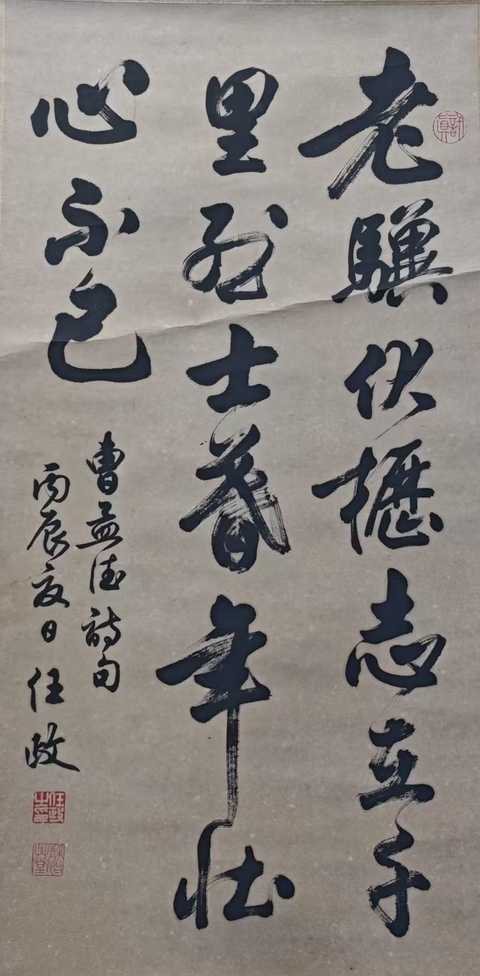 老驥伏櫪志在千
里烈士暮年壯
心不已
曹孟德詩句
丙辰夏日 任政